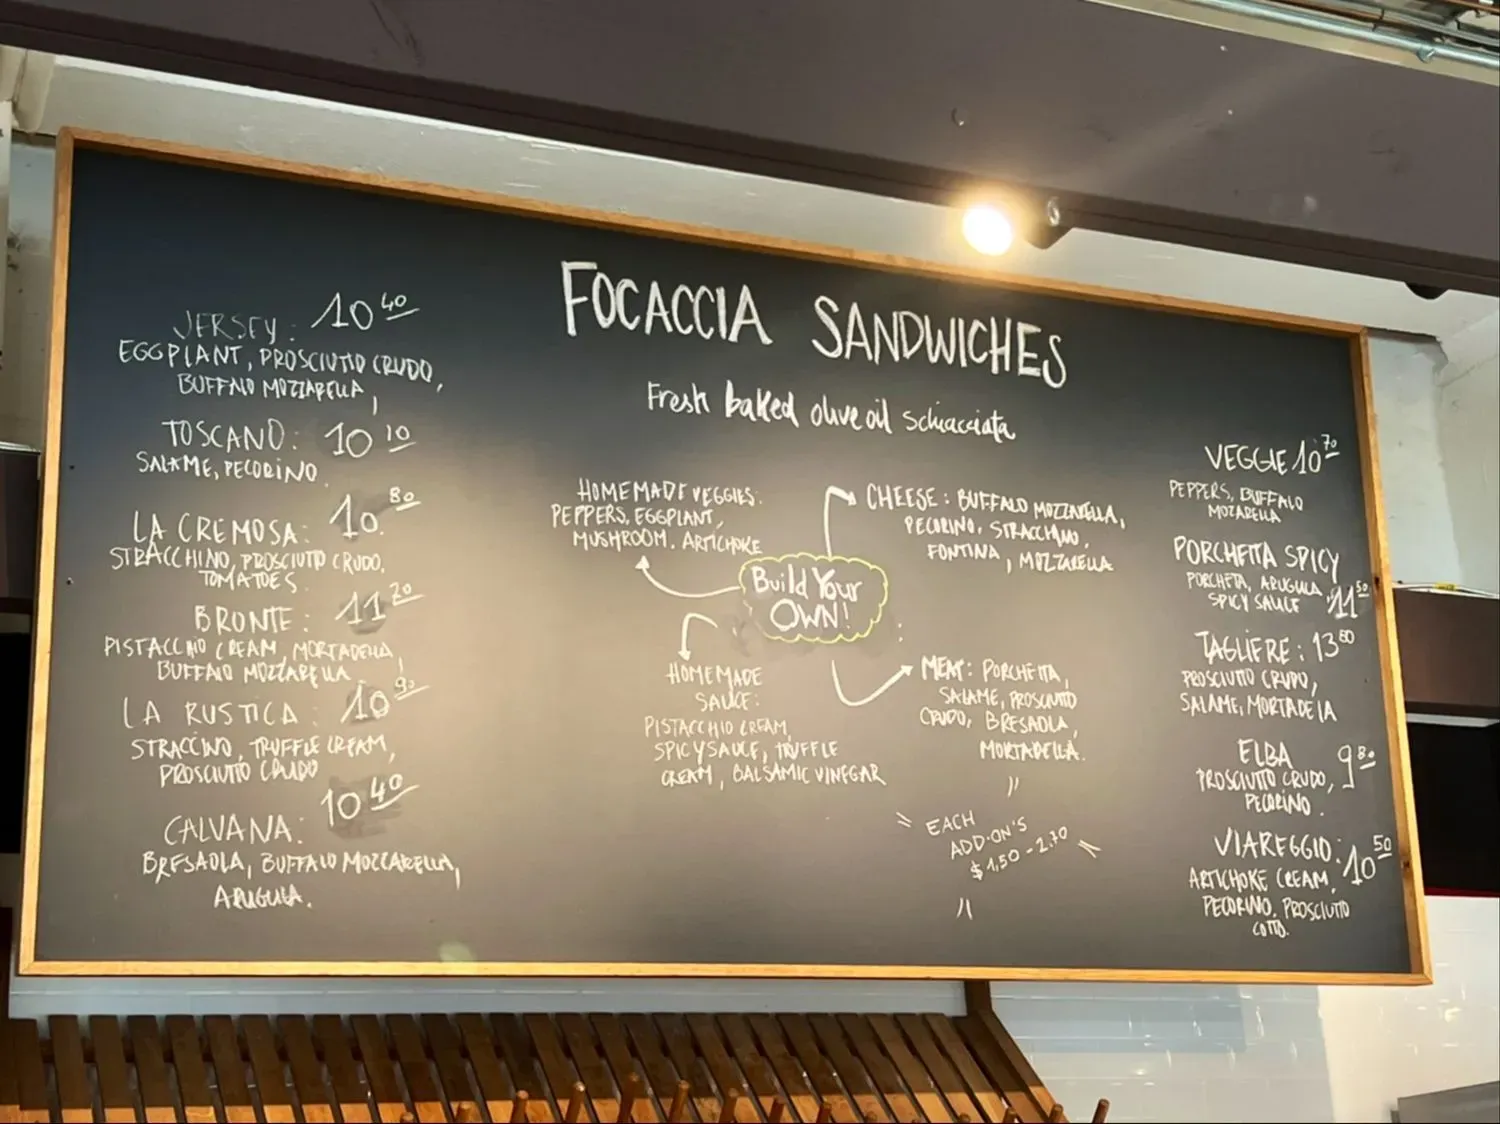 FOCACCIA SANDWICHES
Fresh baked olive oil schiacciata
JERSEY: 10 40
EGGPLANT, PROSCIUTTO CRUDO,
BUFFALO MOZZARELLA,
TOSCANO: 10 10
SALAME, PECORINO
LA CREMOSA: 10 80
STRACCHINO, PROSCIUTTO CRUDO,
TOMATOES.
BRONTE: 11 20
PISTACCHIO CREAM, MORTADELLA,
BUFFALO MOZZARELLA
LA RUSTICA: 10 90
STRACCINO, TRUFFLE CREAM,
PROSCIUTTO CRUDO
CALVANA: 10 40
BRESAOLA, BUFFALO MOZZARELLA,
ARUGULA.
HOMEMADE VEGGIES:
PEPPERS, EGGPLANT,
MUSHROOM. ARTICHOKE
CHEESE: BUFFALO MOZZARELLA,
PECORINO, STRACCHINO,
FONTINA, MOZZARELLA
Build Your
OWN!
HOMEMADE
SAUCE:
PISTACCHIO CREAM,
SPICY SAUCE, TRUFFLE
CREAM, BALSAMIC VINEGAR
MEAT: PORCHETTA,
SALAME, PROSCIUTTO
CRUDO, BRESAOLA,
MORTADELLA.
EACH
ADD-ON'S
$1,50 - 2.70
VEGGIE 10 70
PEPPERS, BUFFALO
MOZARELLA
PORCHETTA SPICY
PORCHETA, ARUGULA,
SPICY SAUCE 11 50
TAGLIERE: 13 80
PROSCIUTTO CRUDO,
SALAME, MORTADELA
ELBA 9 80
PROSCIUTTO CRUDO,
PECORINO.
VIAREGGIO: 10 50
ARTICHOKE CREAM,
PECORINO, PROSCIUTTO
COTTO.